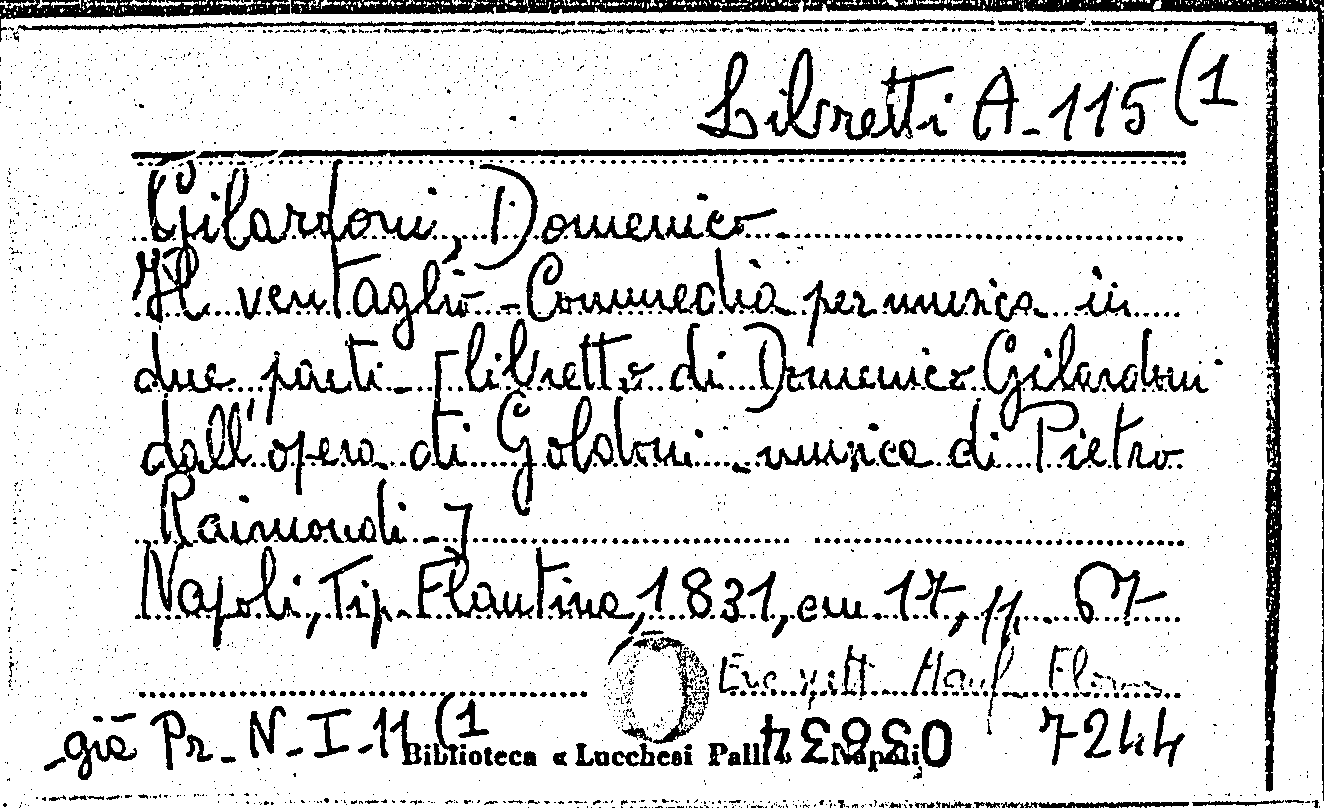 Libretti A-115(1
Gilardoni, Domenico
Il ventaglio - Commedia per musica in
due parti - [libretto di Domenico Gilardoni
dall'opera di Goldoni - musica di Pietro
Raimondi -]
Napoli, Tip. Flautina, 1831, cm. 17, pp. 67
-già Pr. N-I-11(1
Biblioteca « Lucchesi Napoli
03634
7244